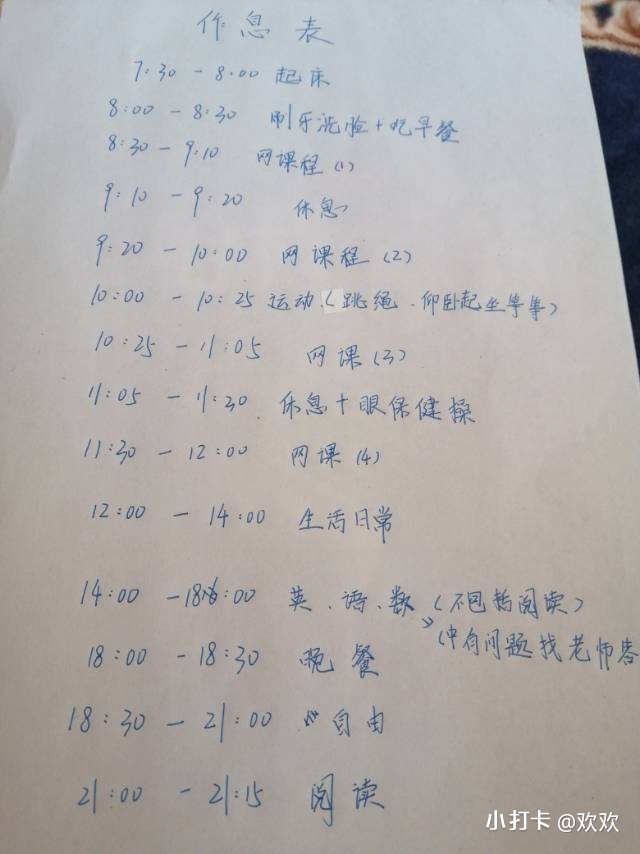 作息表
7:30 - 8:00 起床
8:00 - 8:30 刷牙洗脸+吃早餐
8:30 - 9:10 网课程(1)
9:10 - 9:20 休息
9:20 - 10:00 网课程(2)
10:00 - 10:25 运动(跳绳、仰卧起坐等等)
10:25 - 11:05 网课(3)
11:05 - 11:30 休息+眼保健操
11:30 - 12:00 网课(4)
12:00 - 14:00 生活日常
14:00 - 18:00 英、语、数(不包括阅读)
(中有问题找老师答
18:00 - 18:30 晚餐
18:30 - 21:00 自由
21:00 - 21:15 阅读
小打卡 @欢欢